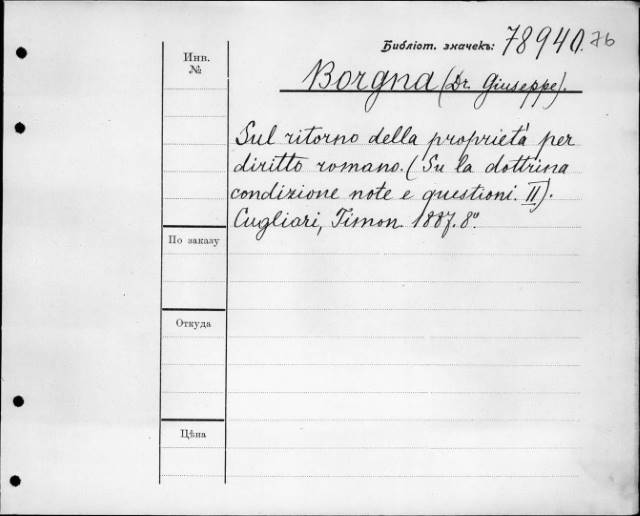 Библіот. значекъ: 78940. 76
Инв. №
Borgna (Dr. Giuseppe).
Sul ritorno della proprietà per
diritto romano. (Su la dottrina
condizione note e questioni. II).
Cugliari, Timon. 1887. 8º.
По заказу
Откуда
Цѣна